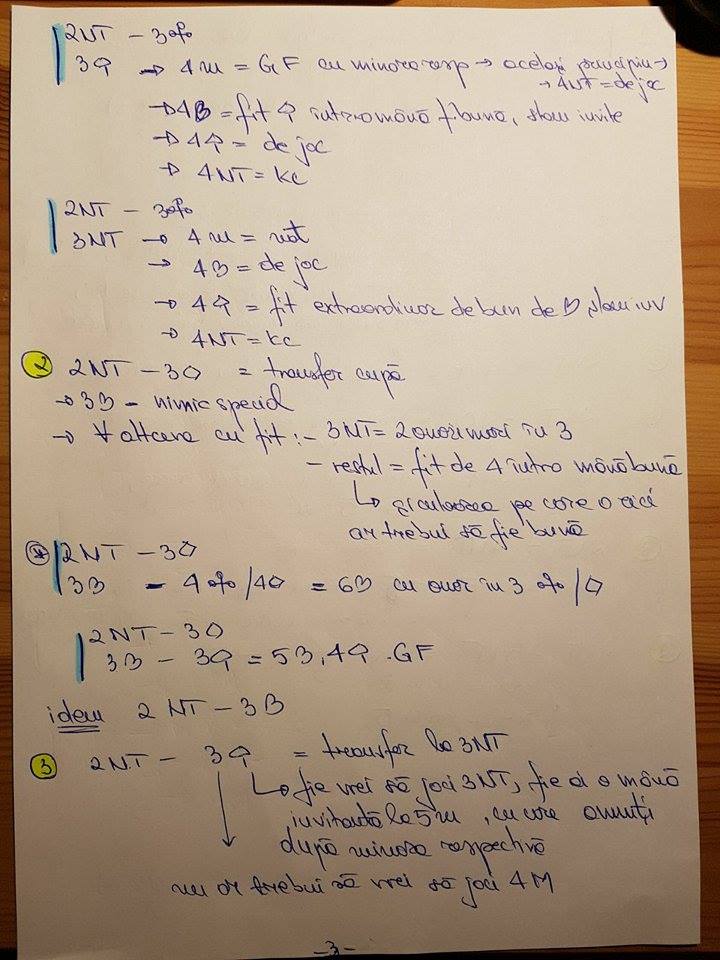 2NT – 3♣
3♠ → 4m = GF cu minora resp → același principiu →
→ 4NT = de joc
→ 4♥ = fit ♠ într-o mână f. bună, slam invite
→ 4♠ = de joc
→ 4NT = KC
2NT – 3♣
3NT → 4m = nat
→ 4♥ = de joc
→ 4♠ = fit extraordinar de bun de ♥, slam inv
→ 4NT = KC
2 2NT – 3♦ = transfer cupă
→ 3♥ – nimic special
→ ∀ altceva cu fit: – 3NT = 2 onori mari în 3
– restul = fit de 4 într-o mână bună
↳ și culoarea pe care o zici
ar trebui să fie bună
* 2NT – 3♦
3♥ – 4♣/4♦ = 6♥ cu onor în 3 ♣/♦
2NT – 3♦
3♥ – 3♠ = 5♥, 4♠. GF
idem 2NT – 3♥
3 2NT – 3♠ = transfer la 3NT
↳ fie vrei să joci 3NT, fie ai o mână
invitantă la 5m, cu care anunți
după minora respectivă
nu ar trebui să vrei să joci 4M
– 3 –